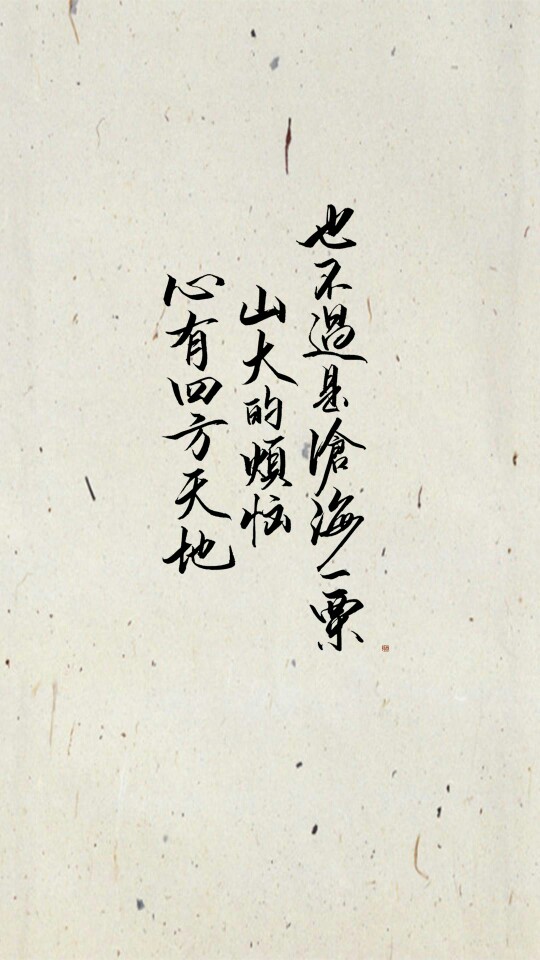 心有四方天地
山大的煩恼
也不過是滄海一粟